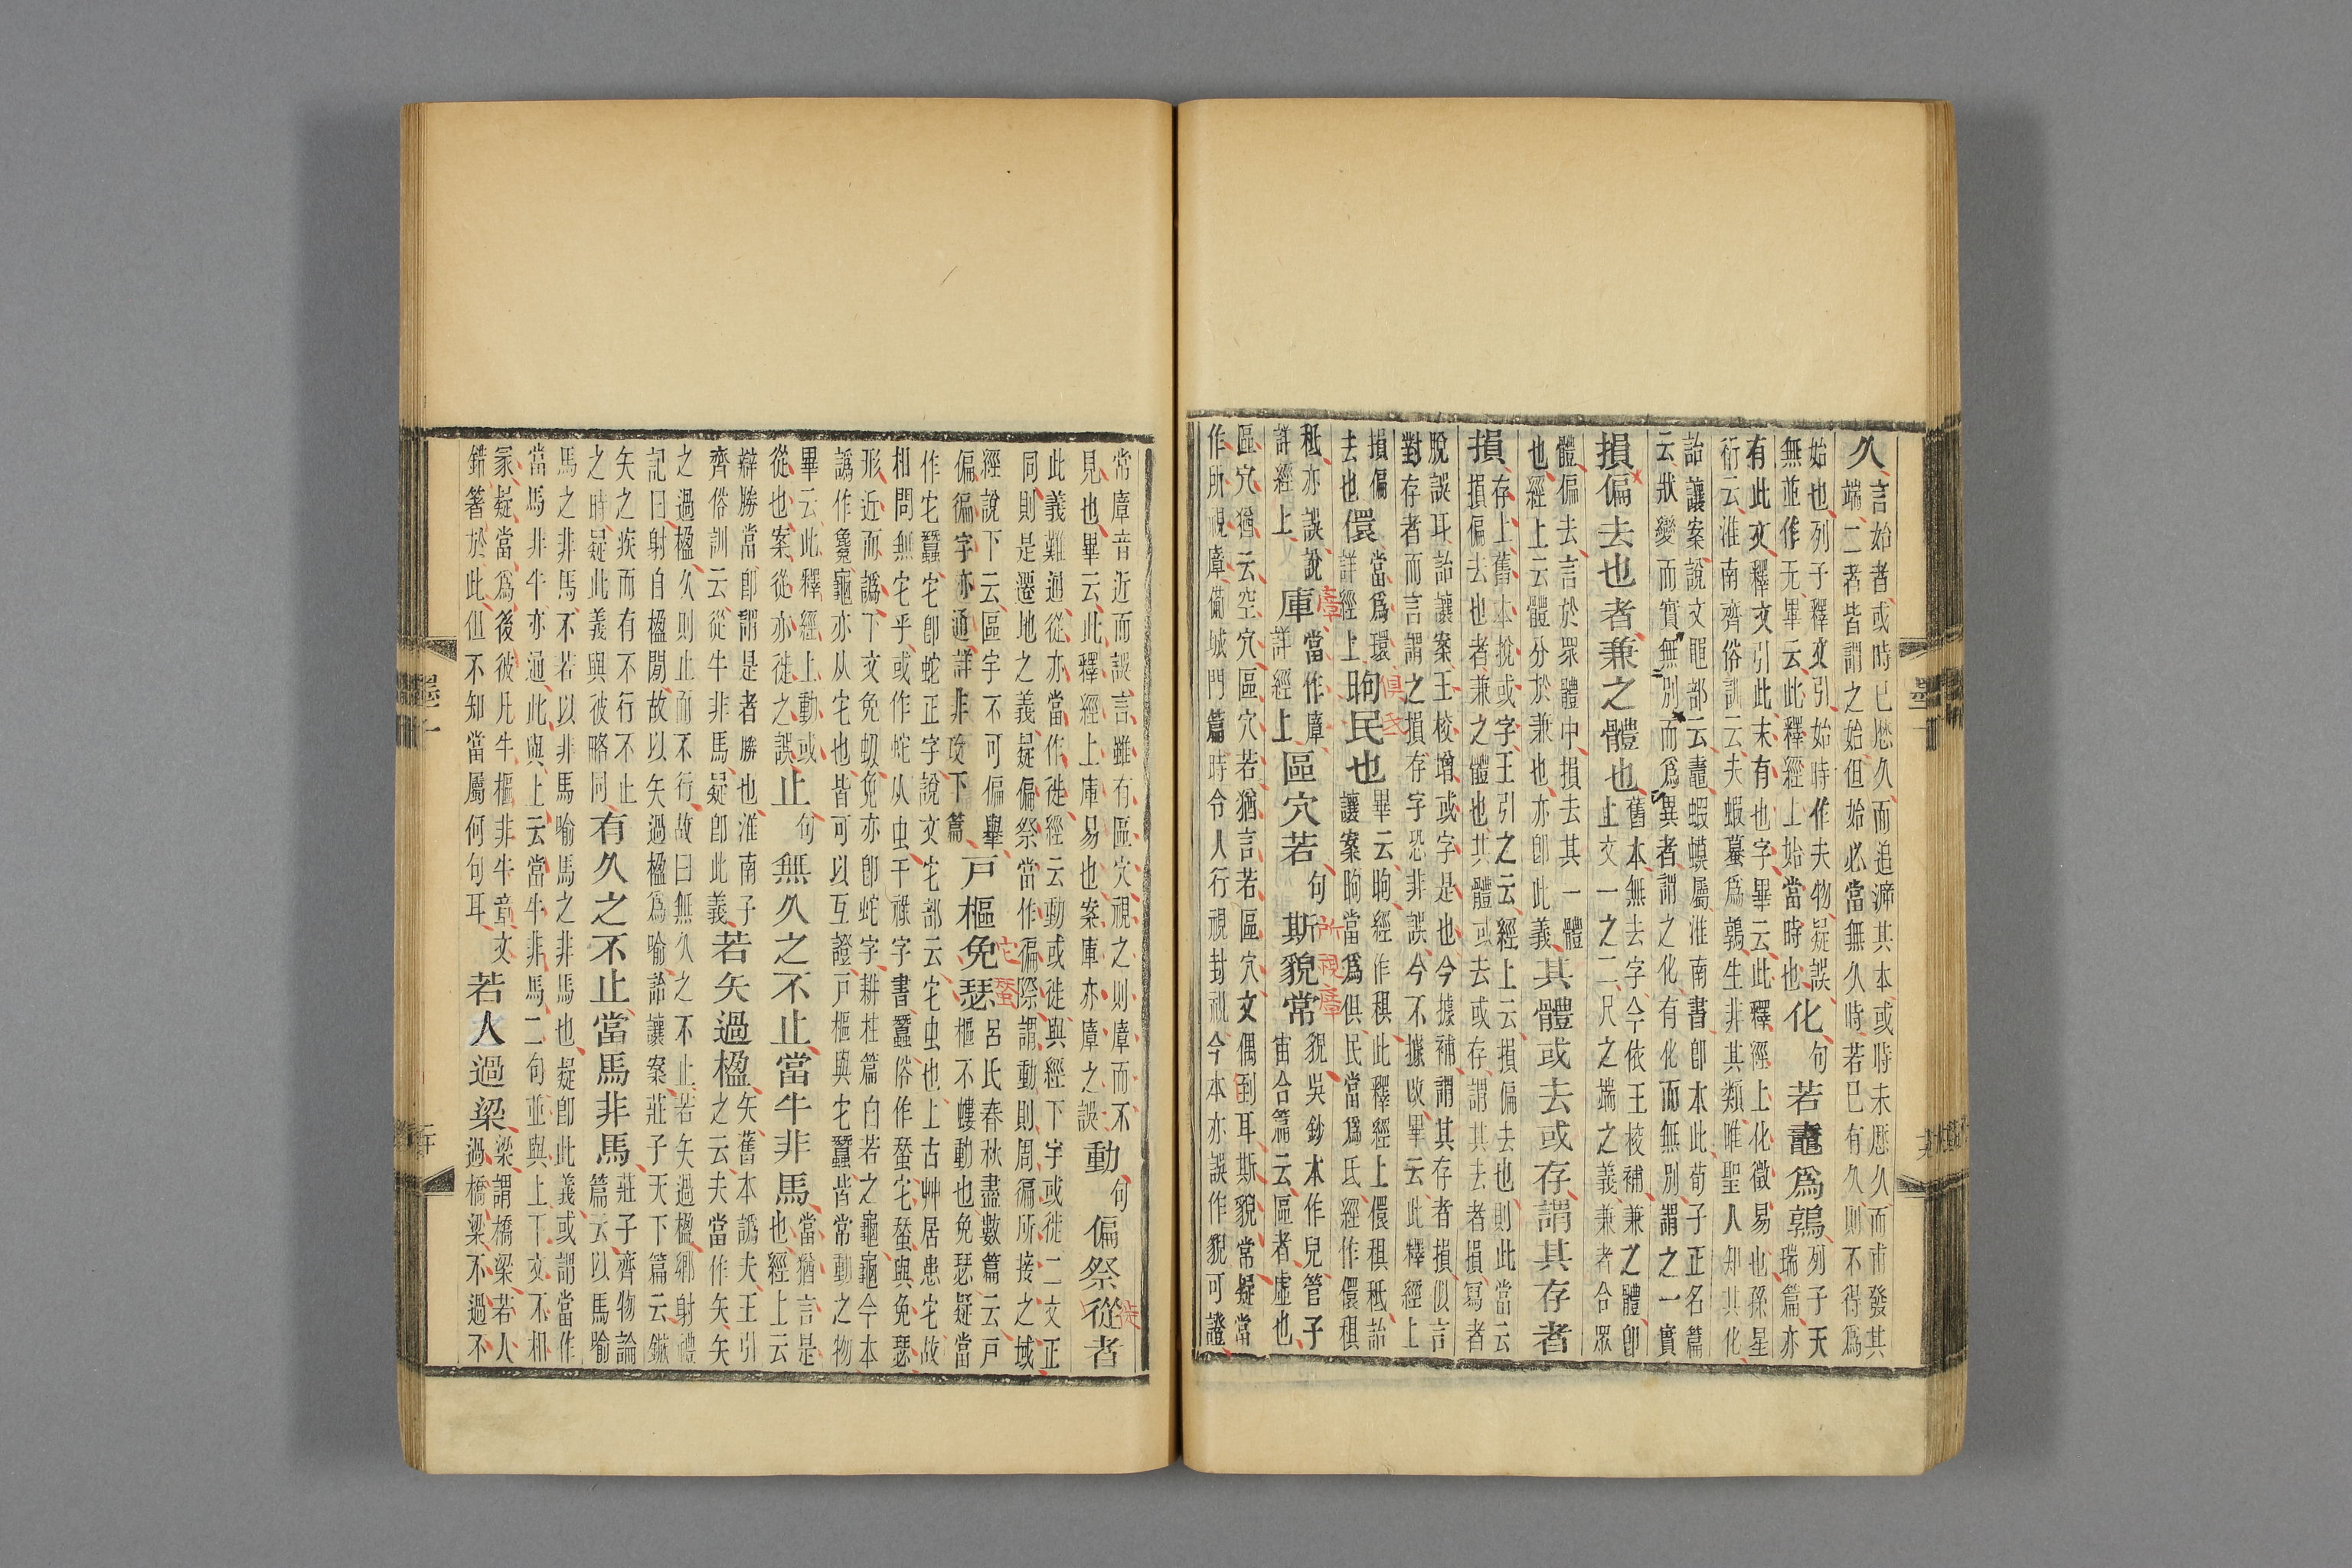 久
言始者或時已歷久而追溯其本或時未歷久而甫發其
端二者皆謂之始但始必當無久時若已有久則不得爲
始也列子釋文引始時作夫物疑誤
無並作无畢云此釋經上始當時也
化句若鼃爲鶉
列子天
瑞篇亦
有此文釋文引此末有也字畢云此釋經上化徵易也孫星
衍云淮南齊俗訓云夫蝦蟇爲鶉生非其類唯聖人知其化
詒讓案說文黽部云鼃蝦蟆屬淮南書卽本此荀子正名篇
云狀變而實無別而爲異者謂之化有化而無別謂之一實
損偏去也者兼之體也
舊本無去字今依王校補兼之體卽
上文一之二尺之端之義兼者合眾
體偏去言於眾體中損去其一體
也經上云體分於兼也亦卽此義
其體或去或存謂其存者
損
存上舊本挩或字王引之云經上云損偏去也則此當云
損偏去也者兼之體也其體或去或存謂其去者損寫者
脫誤耳詒讓案王校增或字是也今據補謂其存者損似言
對存者而言謂之損存字恐非誤今不據改畢云此釋經上
損偏
去也
儇
當爲環
詳經上
昫民也
俱氏
畢云昫經作稘此釋經上儇稘秪詒
讓案昫當爲俱民當爲氏經作儇稘
秪亦誤說
詳經上
庫
㢓
當作㢓
詳經上
區穴若句斯貌常
所視㢓
貌吳鈔本作皃管子
宙合篇云區者虛也
區穴猶云空穴區穴若猶言若區穴文偶到耳斯貌常疑當
作所視㢓備城門篇時令人行視封視今本亦誤作貌可證
常㢓音近而誤言雖有區穴視之則㢓而不
見也畢云此釋經上庫易也案庫亦㢓之誤
動句偏祭從者
徙
此義難通從亦當作徙經云動或徙與經下宇或徙二文正
同則是遷地之義疑偏祭當作徧際謂動則周徧所接之域
經說下云區宇不可偏舉
偏徧字亦通詳非攻下篇
戶樞免瑟
它蝅
呂氏春秋盡數篇云戶
樞不螻動也免瑟疑當
作它蠶它卽蛇正字說文它部云它虫也上古艸居患它故
相問無它乎或作蛇从虫干祿字書蠶俗作蝅它蝅與免瑟
形近而譌下文免蚓免亦卽蛇字耕柱篇白若之龜龜今本
譌作毚龜亦从它也皆可以互證戶樞與它蠶皆常動之物
畢云此釋經上動或
從也案從亦徙之誤
止句無久之不止當牛非馬
當猶言是
也經上云
辯勝當卽謂是者勝也淮南子
齊俗訓云從牛非馬疑卽此義
若矢過楹
矢舊本譌夫王引
之云夫當作矢矢
之過楹久則止而不行故曰無久之不止若矢過楹鄉射禮
記曰射自楹閒故以矢過楹爲喻詒讓案莊子天下篇云鏃
矢之疾而有不行不止
之時疑此義與彼略同
有久之不止當馬非馬
莊子齊物論
篇云以馬喻
馬之非馬不若以非馬喻馬之非馬也疑卽此義或謂當作
當馬非牛亦通此與上云當牛非馬二句並與上下文不相
冡疑當爲後彼凡牛樞非牛章文
錯箸於此但不知當屬何句耳
若人過梁
梁謂橋梁若人
過橋梁不過不